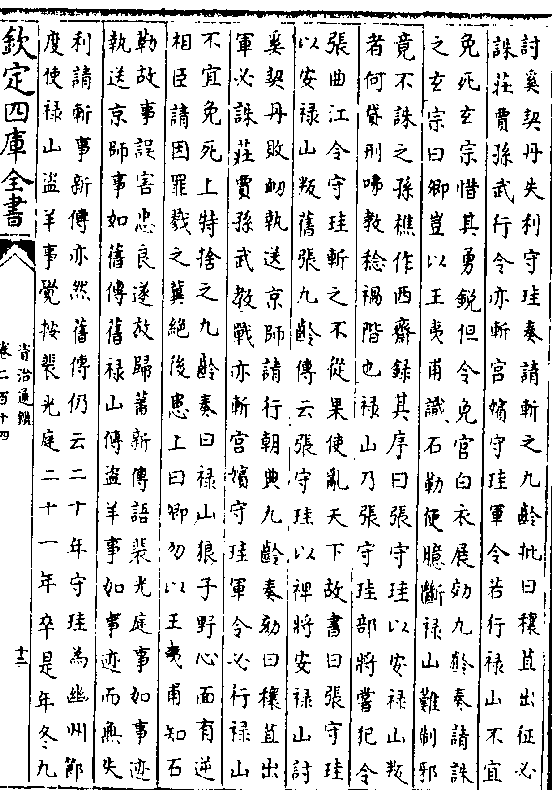 討奚契丹失利守珪奏請斬之九齡批曰穰苴出征必
誅莊賈孫武行令亦斬宫嬪守珪軍令若行禄山不宜
免死玄宗惜其勇鋭但令免官白衣展効九齡奏請誅
之玄宗曰卿豈以王夷甫識石勒便臆斷禄山難制邪
竟不誅之孫樵作西齋録其序曰張守珪以安禄山叛
者何貸刑咈教稔禍階也禄山乃張守珪部將嘗犯令
張曲江令守珪斬之不從果使亂天下故書曰張守珪
以安禄山叛舊張九齡傳云張守珪以禆將安禄山討
奚契丹敗衂執送京師請行朝典九齡奏劾曰穰苴出
軍必誅莊賈孫武教戰亦斬宫嬪守珪軍令必行禄山
不宜免死上特捨之九齡奏曰禄山狼子野心面有逆
相臣請因罪戮之冀絶後患上曰卿勿以王夷甫知石
勒故事誤害忠良遂放歸蕃新傳語裴光庭事如事迹
執送京師事如舊傳舊禄山傳盜羊事如事迹而無失
利請斬事新傳亦然舊傳仍云二十年守珪為幽州節
度使禄山盜羊事覺按裴光庭二十一年卒是年冬九
欽定四庫全書
資治通鑑
卷二百十四
十三